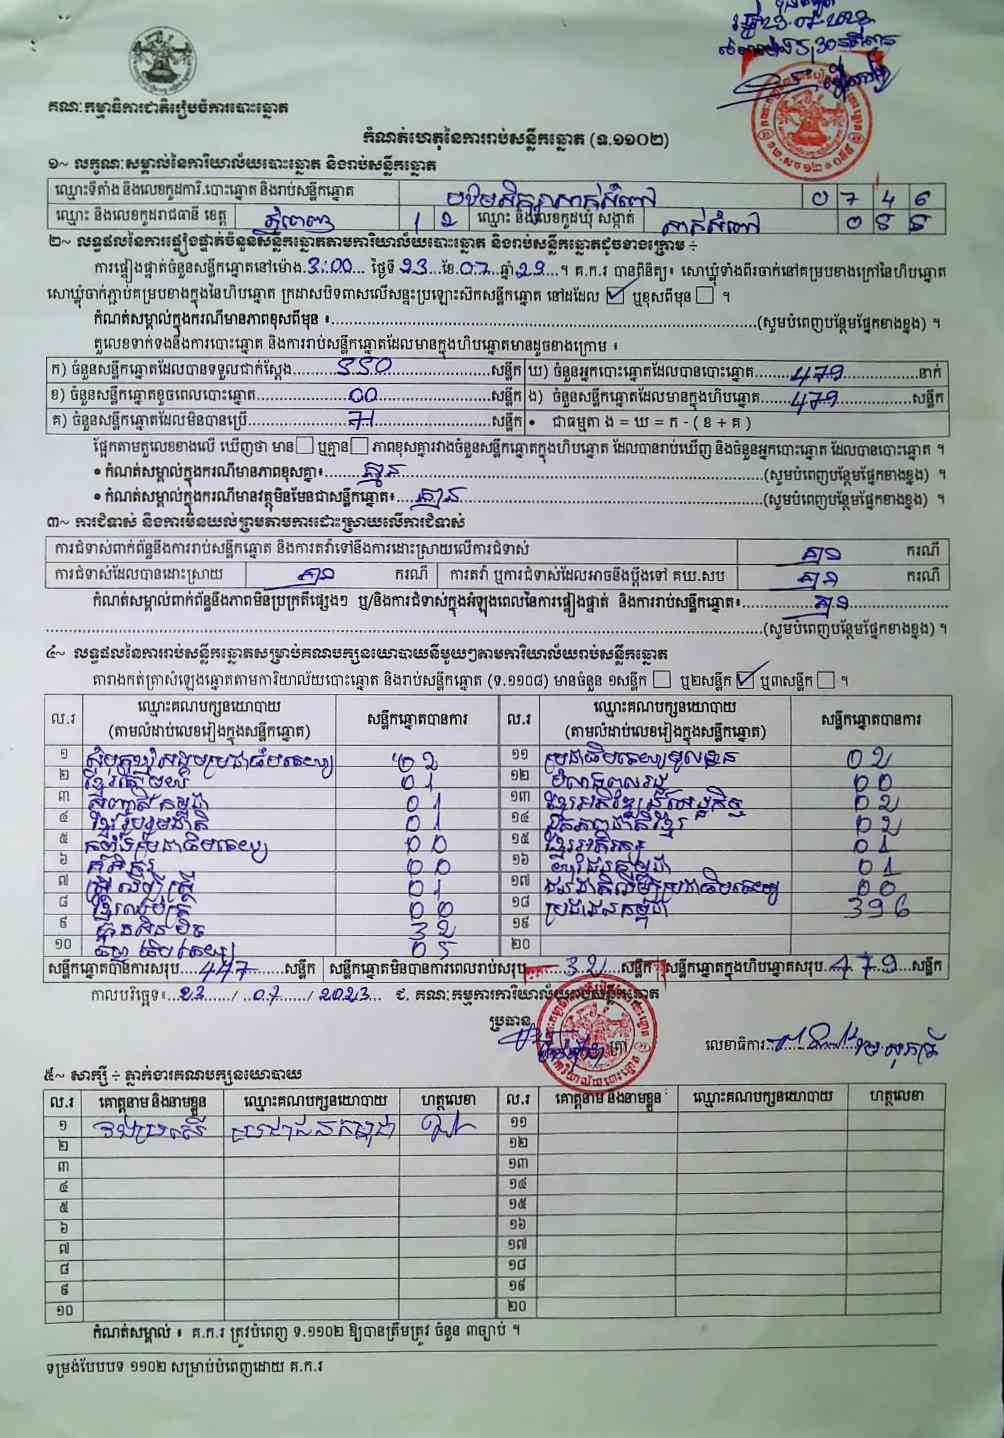 គណៈកម្មាធិការជាតិរៀបចំការបោះឆ្នោត
កំណត់ហេតុនៃការរាប់សន្លឹកឆ្នោត (ទ.១១០២)
១~ លក្ខណៈសម្គាល់នៃការិយាល័យបោះឆ្នោត និងរាប់សន្លឹកឆ្នោត
ឈ្មោះទីតាំង និងលេខកូដការិ.បោះឆ្នោត និងរាប់សន្លឹកឆ្នោត 0 7 4 6
ឈ្មោះ និងលេខកូដរាជធានី ខេត្ត ភ្នំពេញ 1 2 ឈ្មោះ និងលេខកូដឃុំ សង្កាត់
២~ លទ្ធផលនៃការផ្ទៀងផ្ទាត់ចំនួនសន្លឹកឆ្នោតតាមការិយាល័យបោះឆ្នោត និងរាប់សន្លឹកឆ្នោតដូចខាងក្រោម ÷
ការផ្ទៀងផ្ទាត់ចំនួនសន្លឹកឆ្នោតនៅម៉ោង 3:00 ថ្ងៃទី 23 ខែ 07 ឆ្នាំ 23 ។ គ.ក.រ បានពិនិត្យ៖ សោឃ្លុំទាំងពីរចាក់នៅគម្របខាងក្រៅនៃហិបឆ្នោត
សោឃ្លុំចាក់ភ្ជាប់គម្របខាងក្នុងនៃហិបឆ្នោត ក្រដាសបិទពាសលើសន្ទះប្រឡោះស៊កសន្លឹកឆ្នោត នៅដដែល ☑ ឬខុសពីមុន ☐ ។
កំណត់សម្គាល់ក្នុងករណីមានភាពខុសពីមុន ៖ (សូមបំពេញបន្ថែមផ្នែកខាងខ្នង) ។
តួលេខទាក់ទងនឹងការបោះឆ្នោត និងការរាប់សន្លឹកឆ្នោតដែលមានក្នុងហិបឆ្នោតមានដូចខាងក្រោម ៖
ក) ចំនួនសន្លឹកឆ្នោតដែលបានទទួលជាក់ស្តែង 550 សន្លឹក ឃ) ចំនួនអ្នកបោះឆ្នោតដែលបានបោះឆ្នោត 479 នាក់
ខ) ចំនួនសន្លឹកឆ្នោតខូចពេលបោះឆ្នោត 00 សន្លឹក ង) ចំនួនសន្លឹកឆ្នោតដែលមានក្នុងហិបឆ្នោត 479 សន្លឹក
គ) ចំនួនសន្លឹកឆ្នោតដែលមិនបានប្រើ 71 សន្លឹក • ជាធម្មតា ង = ឃ = ក - ( ខ + គ )
ផ្អែកតាមតួលេខខាងលើ ឃើញថា មាន ☐ ឬគ្មាន ☐ ភាពខុសគ្នារវាងចំនួនសន្លឹកឆ្នោតក្នុងហិបឆ្នោត ដែលបានរាប់ឃើញ និងចំនួនអ្នកបោះឆ្នោត ដែលបានបោះឆ្នោត ។
• កំណត់សម្គាល់ក្នុងករណីមានភាពខុសគ្នា៖ គ្មាន (សូមបំពេញបន្ថែមផ្នែកខាងខ្នង) ។
• កំណត់សម្គាល់ក្នុងករណីមានវត្ថុមិនមែនជាសន្លឹកឆ្នោត៖ គ្មាន (សូមបំពេញបន្ថែមផ្នែកខាងខ្នង) ។
៣~ ការជំទាស់ និងការមិនយល់ព្រមតាមការដោះស្រាយលើការជំទាស់
ការជំទាស់ពាក់ព័ន្ធនឹងការរាប់សន្លឹកឆ្នោត និងការតវ៉ាទៅនឹងការដោះស្រាយលើការជំទាស់ គ្មាន ករណី
ការជំទាស់ដែលបានដោះស្រាយ គ្មាន ករណី ការតវ៉ា ឬការជំទាស់ដែលអាចនឹងប្តឹងទៅ គឃ.សប គ្មាន ករណី
កំណត់សម្គាល់ពាក់ព័ន្ធនឹងភាពមិនប្រក្រតីផ្សេងៗ ឬ/និងការជំទាស់ក្នុងអំឡុងពេលនៃការផ្ទៀងផ្ទាត់ និងការរាប់សន្លឹកឆ្នោត៖ គ្មាន
(សូមបំពេញបន្ថែមផ្នែកខាងខ្នង) ។
៤~ លទ្ធផលនៃការរាប់សន្លឹកឆ្នោតសម្រាប់គណបក្សនយោបាយនីមួយៗតាមការិយាល័យរាប់សន្លឹកឆ្នោត
តារាងកត់ត្រាសំឡេងឆ្នោតតាមការិយាល័យបោះឆ្នោត និងរាប់សន្លឹកឆ្នោត (ទ.១១០៨) មានចំនួន ១សន្លឹក ☐ ឬ២សន្លឹក ☑ ឬ៣សន្លឹក ☐ ។
ល.រ ឈ្មោះគណបក្សនយោបាយ (តាមលំដាប់លេខរៀងក្នុងសន្លឹកឆ្នោត) សន្លឹកឆ្នោតបានការ ល.រ ឈ្មោះគណបក្សនយោបាយ (តាមលំដាប់លេខរៀងក្នុងសន្លឹកឆ្នោត) សន្លឹកឆ្នោតបានការ
១ សំបុកឃ្មុំសង្គមប្រជាធិបតេយ្យ 02 ១១ ប្រជាធិបតេយ្យមូលដ្ឋាន 02
២ 01 ១២ 00
៣ 01 ១៣ 02
៤ ខ្មែររួបរួមជាតិ 01 ១៤ ឯកភាពជាតិខ្មែរ 02
៥ កម្លាំងប្រជាធិបតេយ្យ 00 ១៥ ខ្មែរអភិរក្ស 01
៦ 00 ១៦ 01
៧ ស្ត្រីដើម្បីស្ត្រី 01 ១៧ 00
៨ 00 ១៨ ប្រជាជនកម្ពុជា 396
៩ ហ្វ៊ុនស៊ិនប៉ិច 32 ១៩
១០ 05 ២០
សន្លឹកឆ្នោតបានការសរុប 447 សន្លឹក សន្លឹកឆ្នោតមិនបានការពេលរាប់សរុប 32 សន្លឹក សន្លឹកឆ្នោតក្នុងហិបឆ្នោតសរុប 479 សន្លឹក
កាលបរិច្ឆេទ៖ 23 / 07 / 2023 ជ. គណៈកម្មការការិយាល័យរាប់សន្លឹកឆ្នោត
ប្រធាន
លេខាធិការ
៥~ សាក្សី ÷ ភ្នាក់ងារគណបក្សនយោបាយ
ល.រ គោត្តនាម និងនាមខ្លួន ឈ្មោះគណបក្សនយោបាយ ហត្ថលេខា ល.រ គោត្តនាម និងនាមខ្លួន ឈ្មោះគណបក្សនយោបាយ ហត្ថលេខា
១ ប្រជាជនកម្ពុជា ១១
២ ១២
៣ ១៣
៤ ១៤
៥ ១៥
៦ ១៦
៧ ១៧
៨ ១៨
៩ ១៩
១០ ២០
កំណត់សម្គាល់ ៖ គ.ក.រ ត្រូវបំពេញ ទ.១១០២ ឱ្យបានត្រឹមត្រូវ ចំនួន ៣ច្បាប់ ។
ទម្រង់បែបបទ ១១០២ សម្រាប់បំពេញដោយ គ.ក.រ